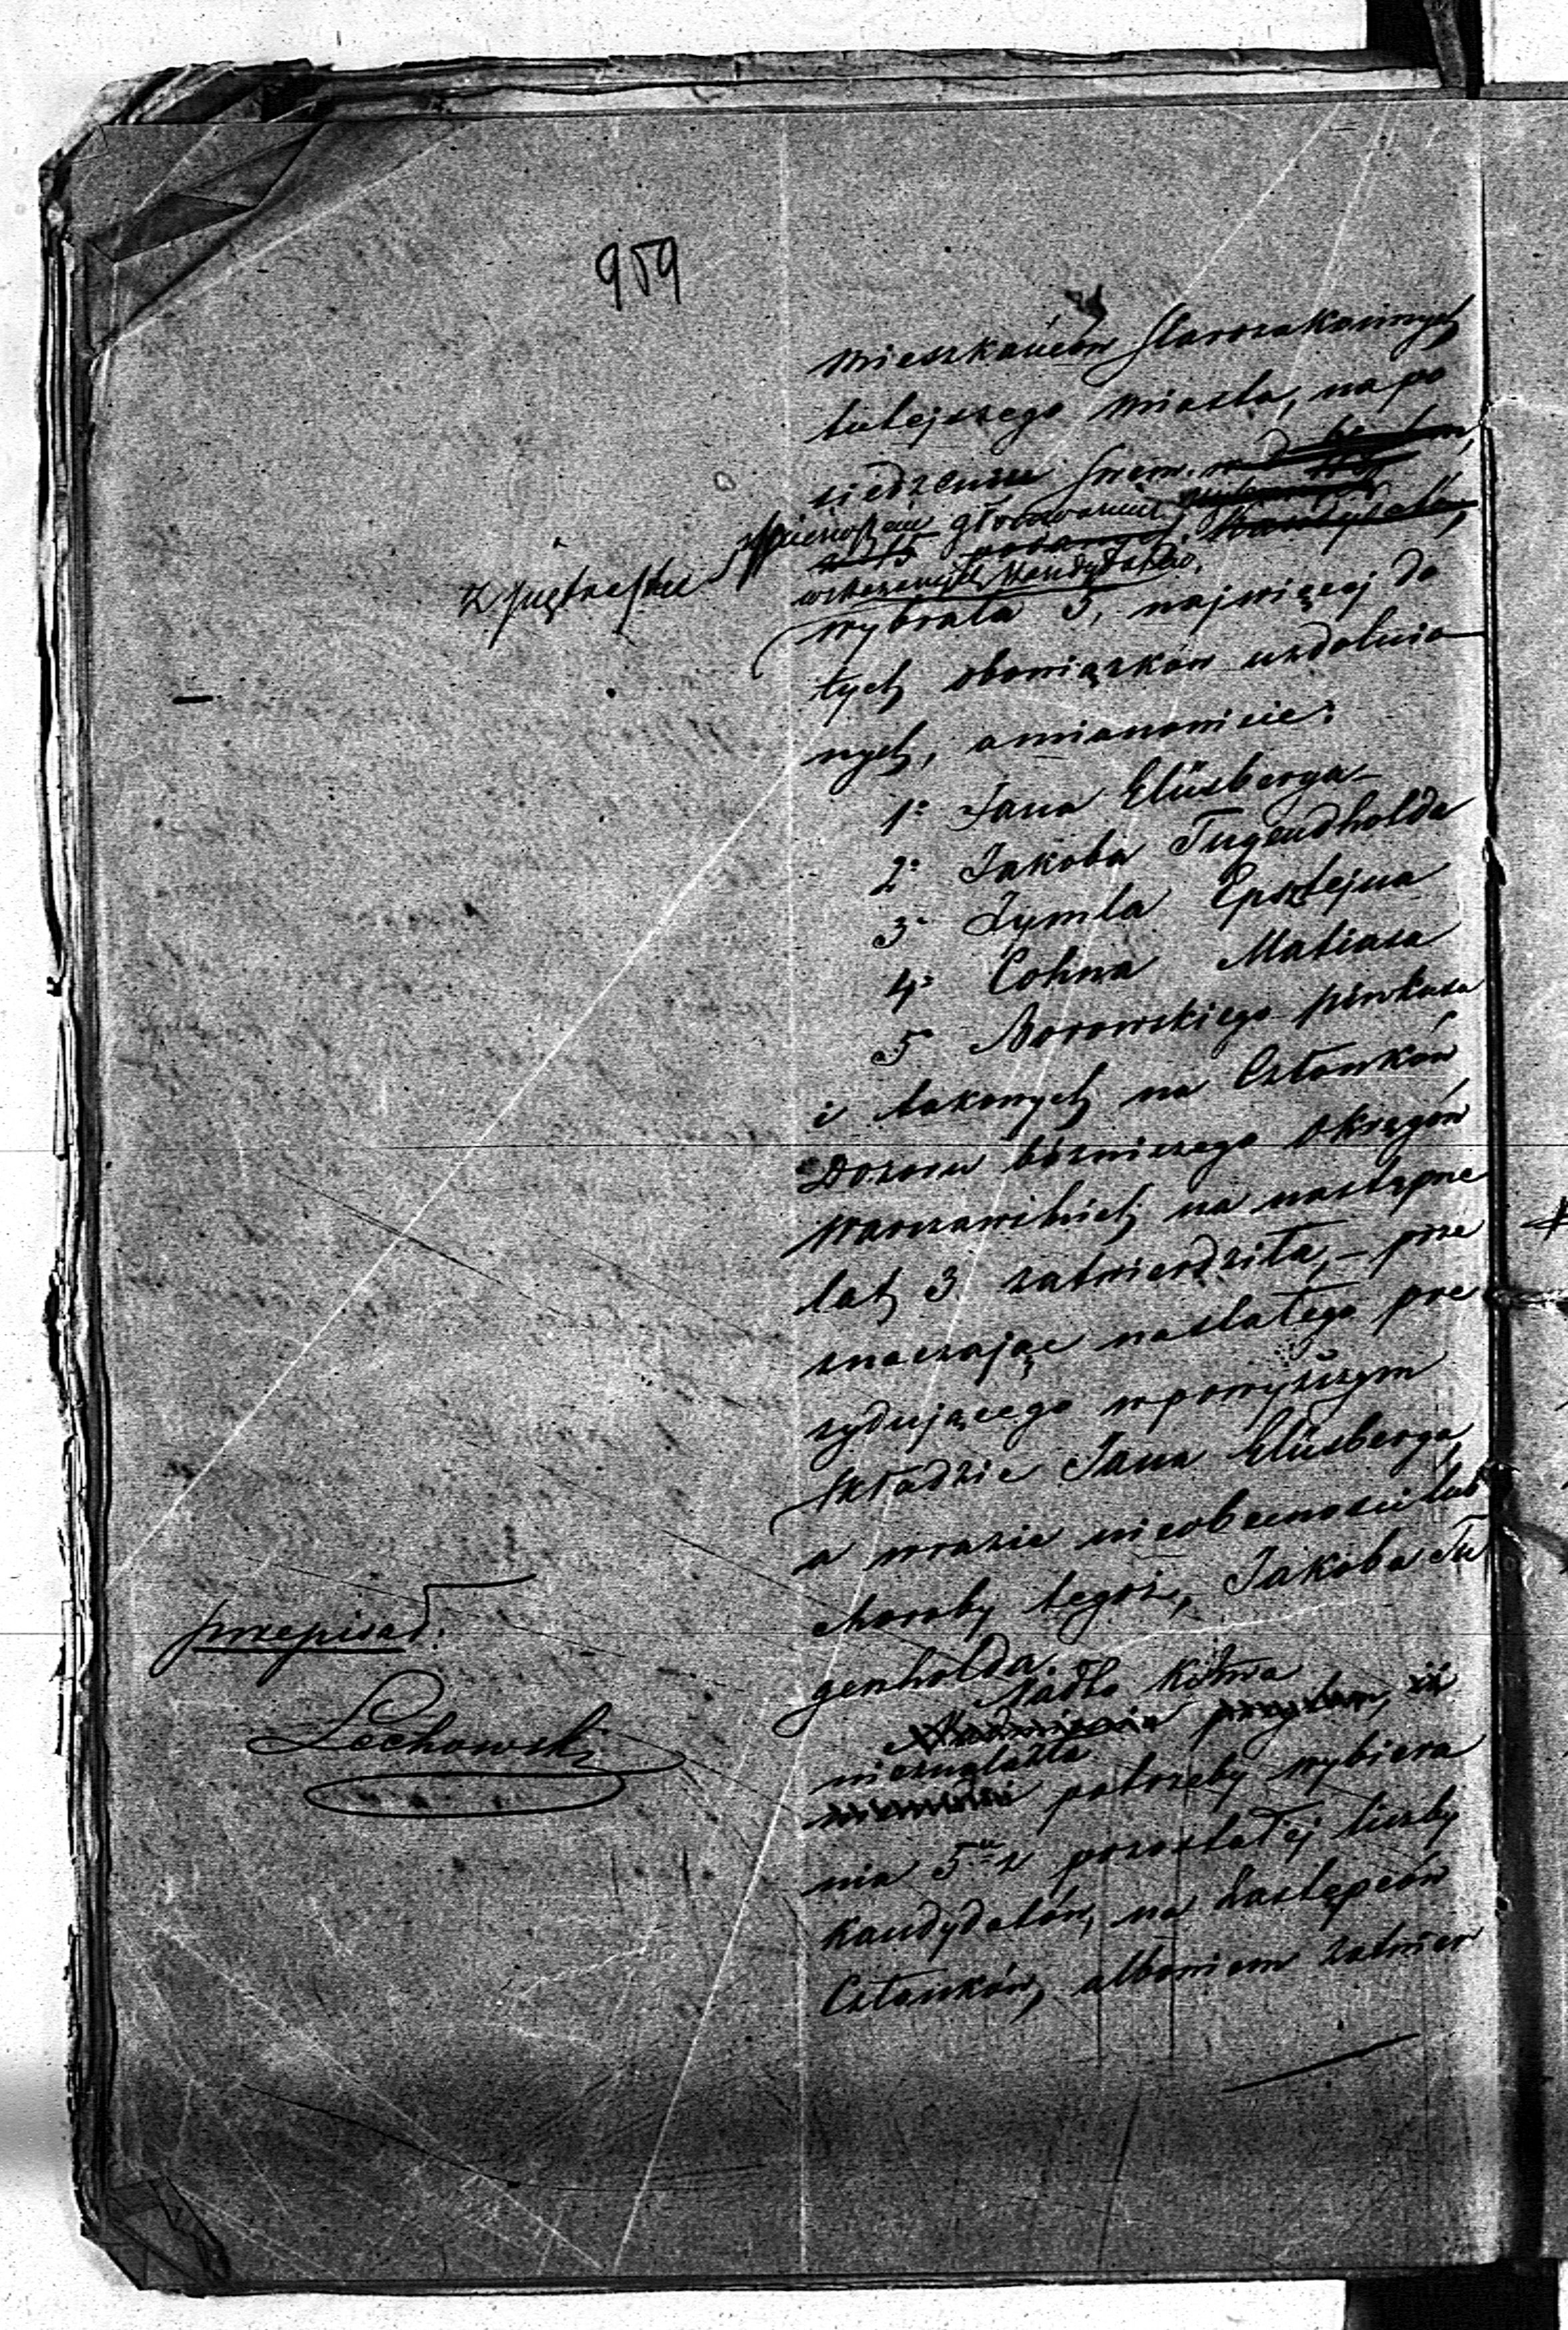 959
mieszkańców Starozakonnych
tutejszego miasta, na po
siedzeniu swem
głosowaniu
z piętnastu
wskazanych kandydatów,
wybrała 5, najwięcej do
tych obowiązków uzdolnio
nych, amianowicie:
1° Jana Glüsberga
2° Jakoba Tugendholda
3° Zymla Epsztejna
4° Cohna Matiasa
5° Norowskiego Pinkusa
i takowych na Członków
Dozoru bóżniczego Okręgów
Warszawskich na następne
lat 3 zatwierdziła, – prze
znaczając nastałego pre
zydującego wpowyższym
składzie Jana Glüsberga,
a wrazie nieobecności lub
choroby tegoż, Jakoba Tu
genholda.
przepisać
Lechowski
Nadto Kóma
nieznalazła
potrzeby wybiera
nia 5u z pozostałej liczby
kandydatów, na Zastępców
Członków, albowiem zatwier